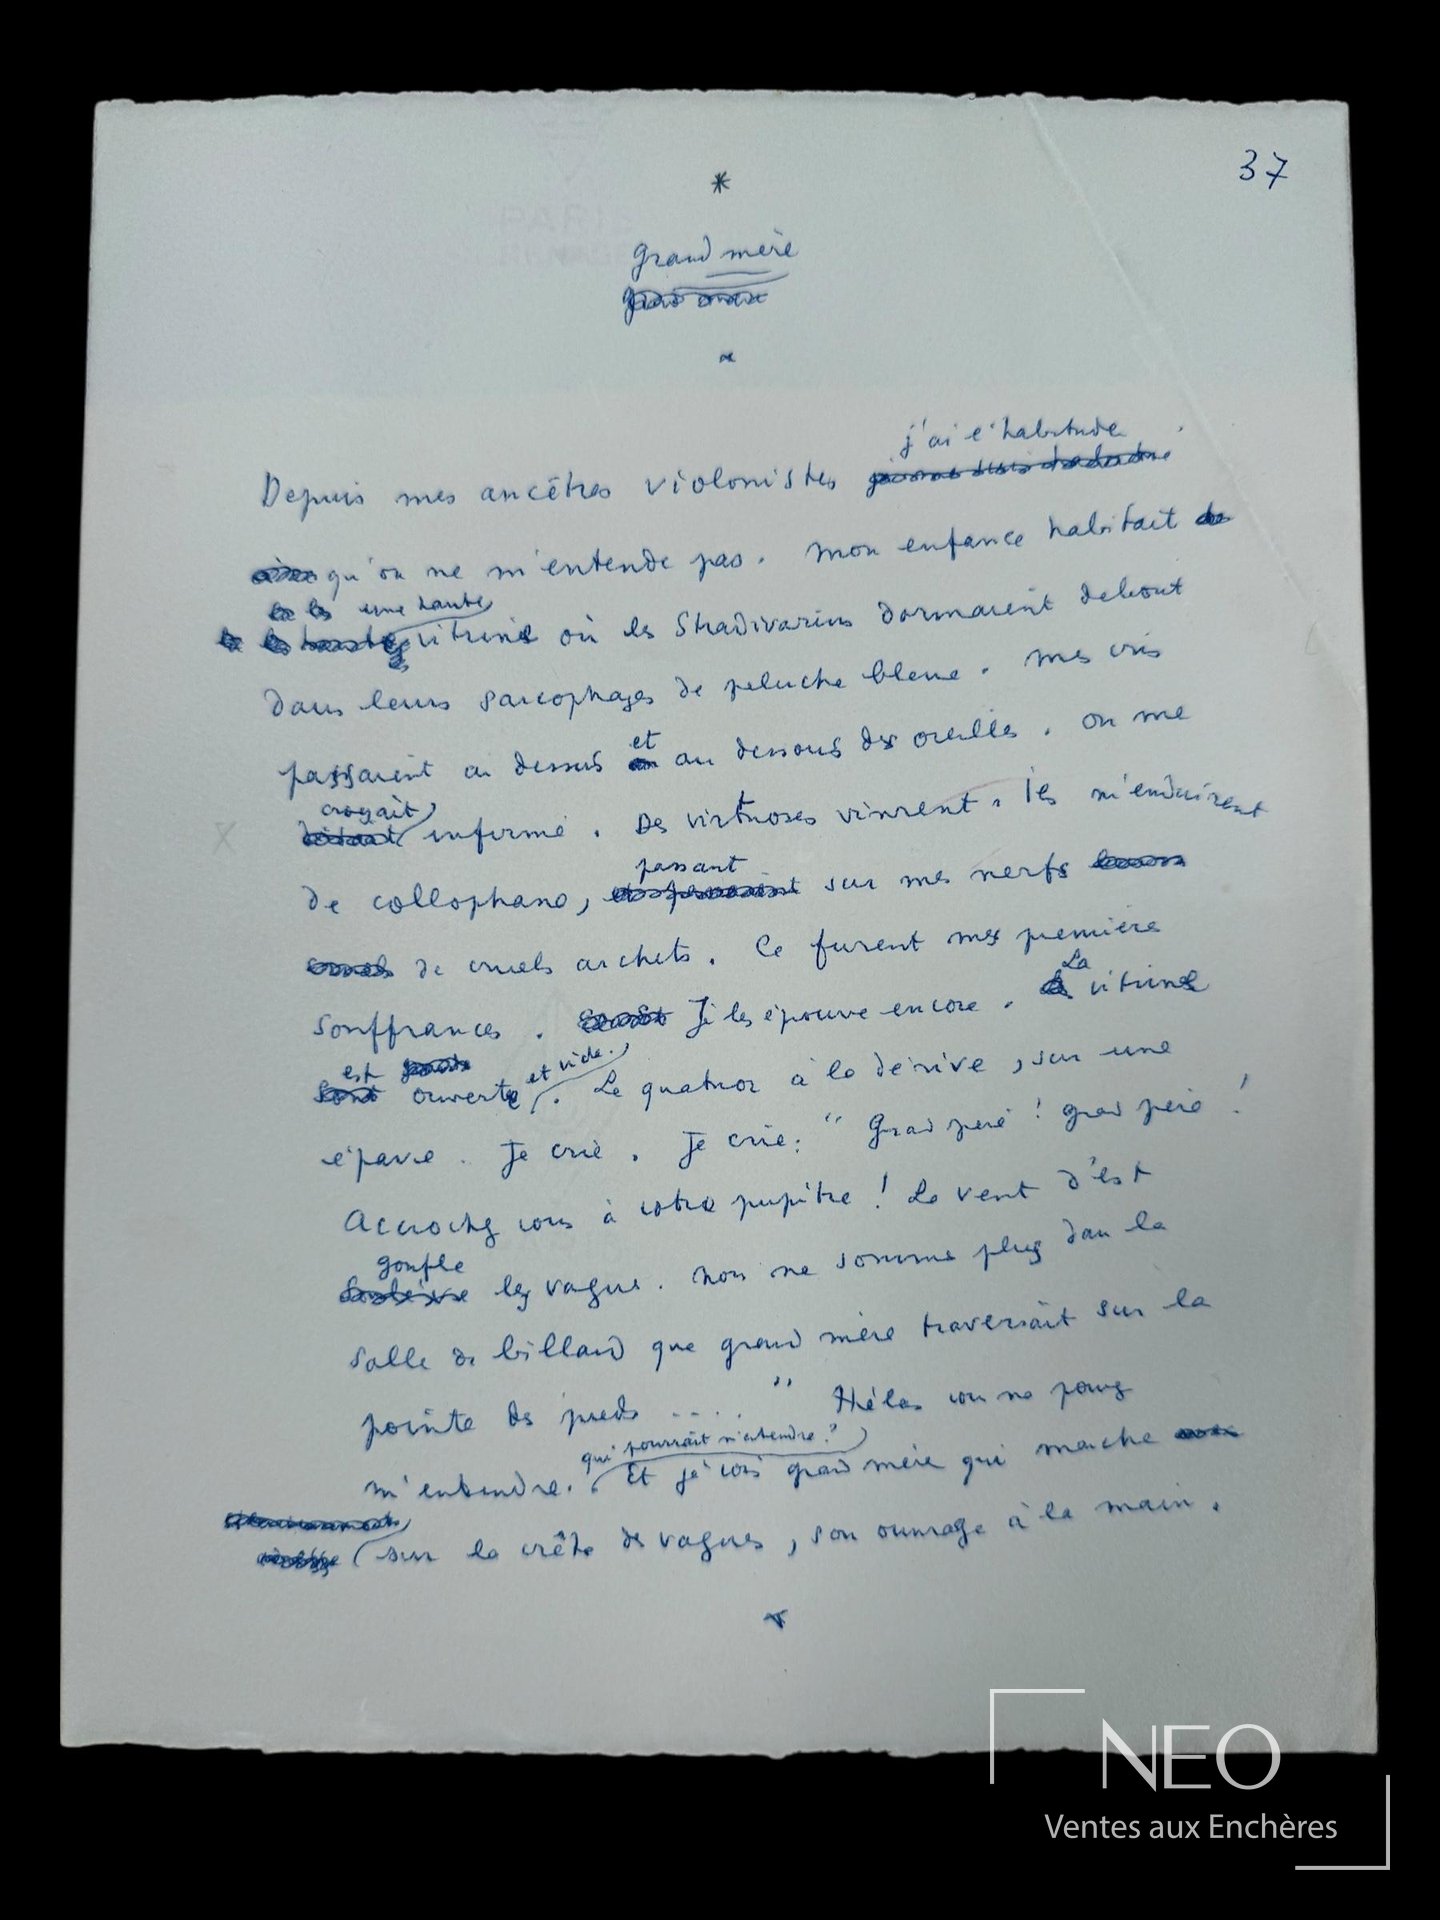 37
*
Grand mère
j'ai l'habitude
Depuis mes ancêtres violonistes
qu'on ne m'entende pas. Mon enfance habitait
une haute
vitrine où les Stradivarius dormaient debout
dans leurs sarcophages de peluche bleue. Mes cris
passaient au dessus et au dessous des oreilles. On me
croyait
infirme. Des virtuoses vinrent. Ils m'enduirent
passant
de collophane, sur mes nerfs
de cruels archets. Ce furent mes première
La
souffrances. Je les épouve encore. vitrine
est et vide.
ouverte. Le quatuor à la dérive, sur une
épave. Je crie. Je crie: " Grand père! grand père!
Accrochez vous à votre pupitre! Le vent d'est
gonfle
les vague. Nous ne somme plus dans la
salle de billard que grand mère traversait sur la
pointe des pieds ....." Hélas vous ne pouvez
qui pourrait m'entendre?
m'entendre. Et je vois grand mère qui marche
sur la crête des vagues, son ouvrage à la main.
NEO
Ventes aux Enchères